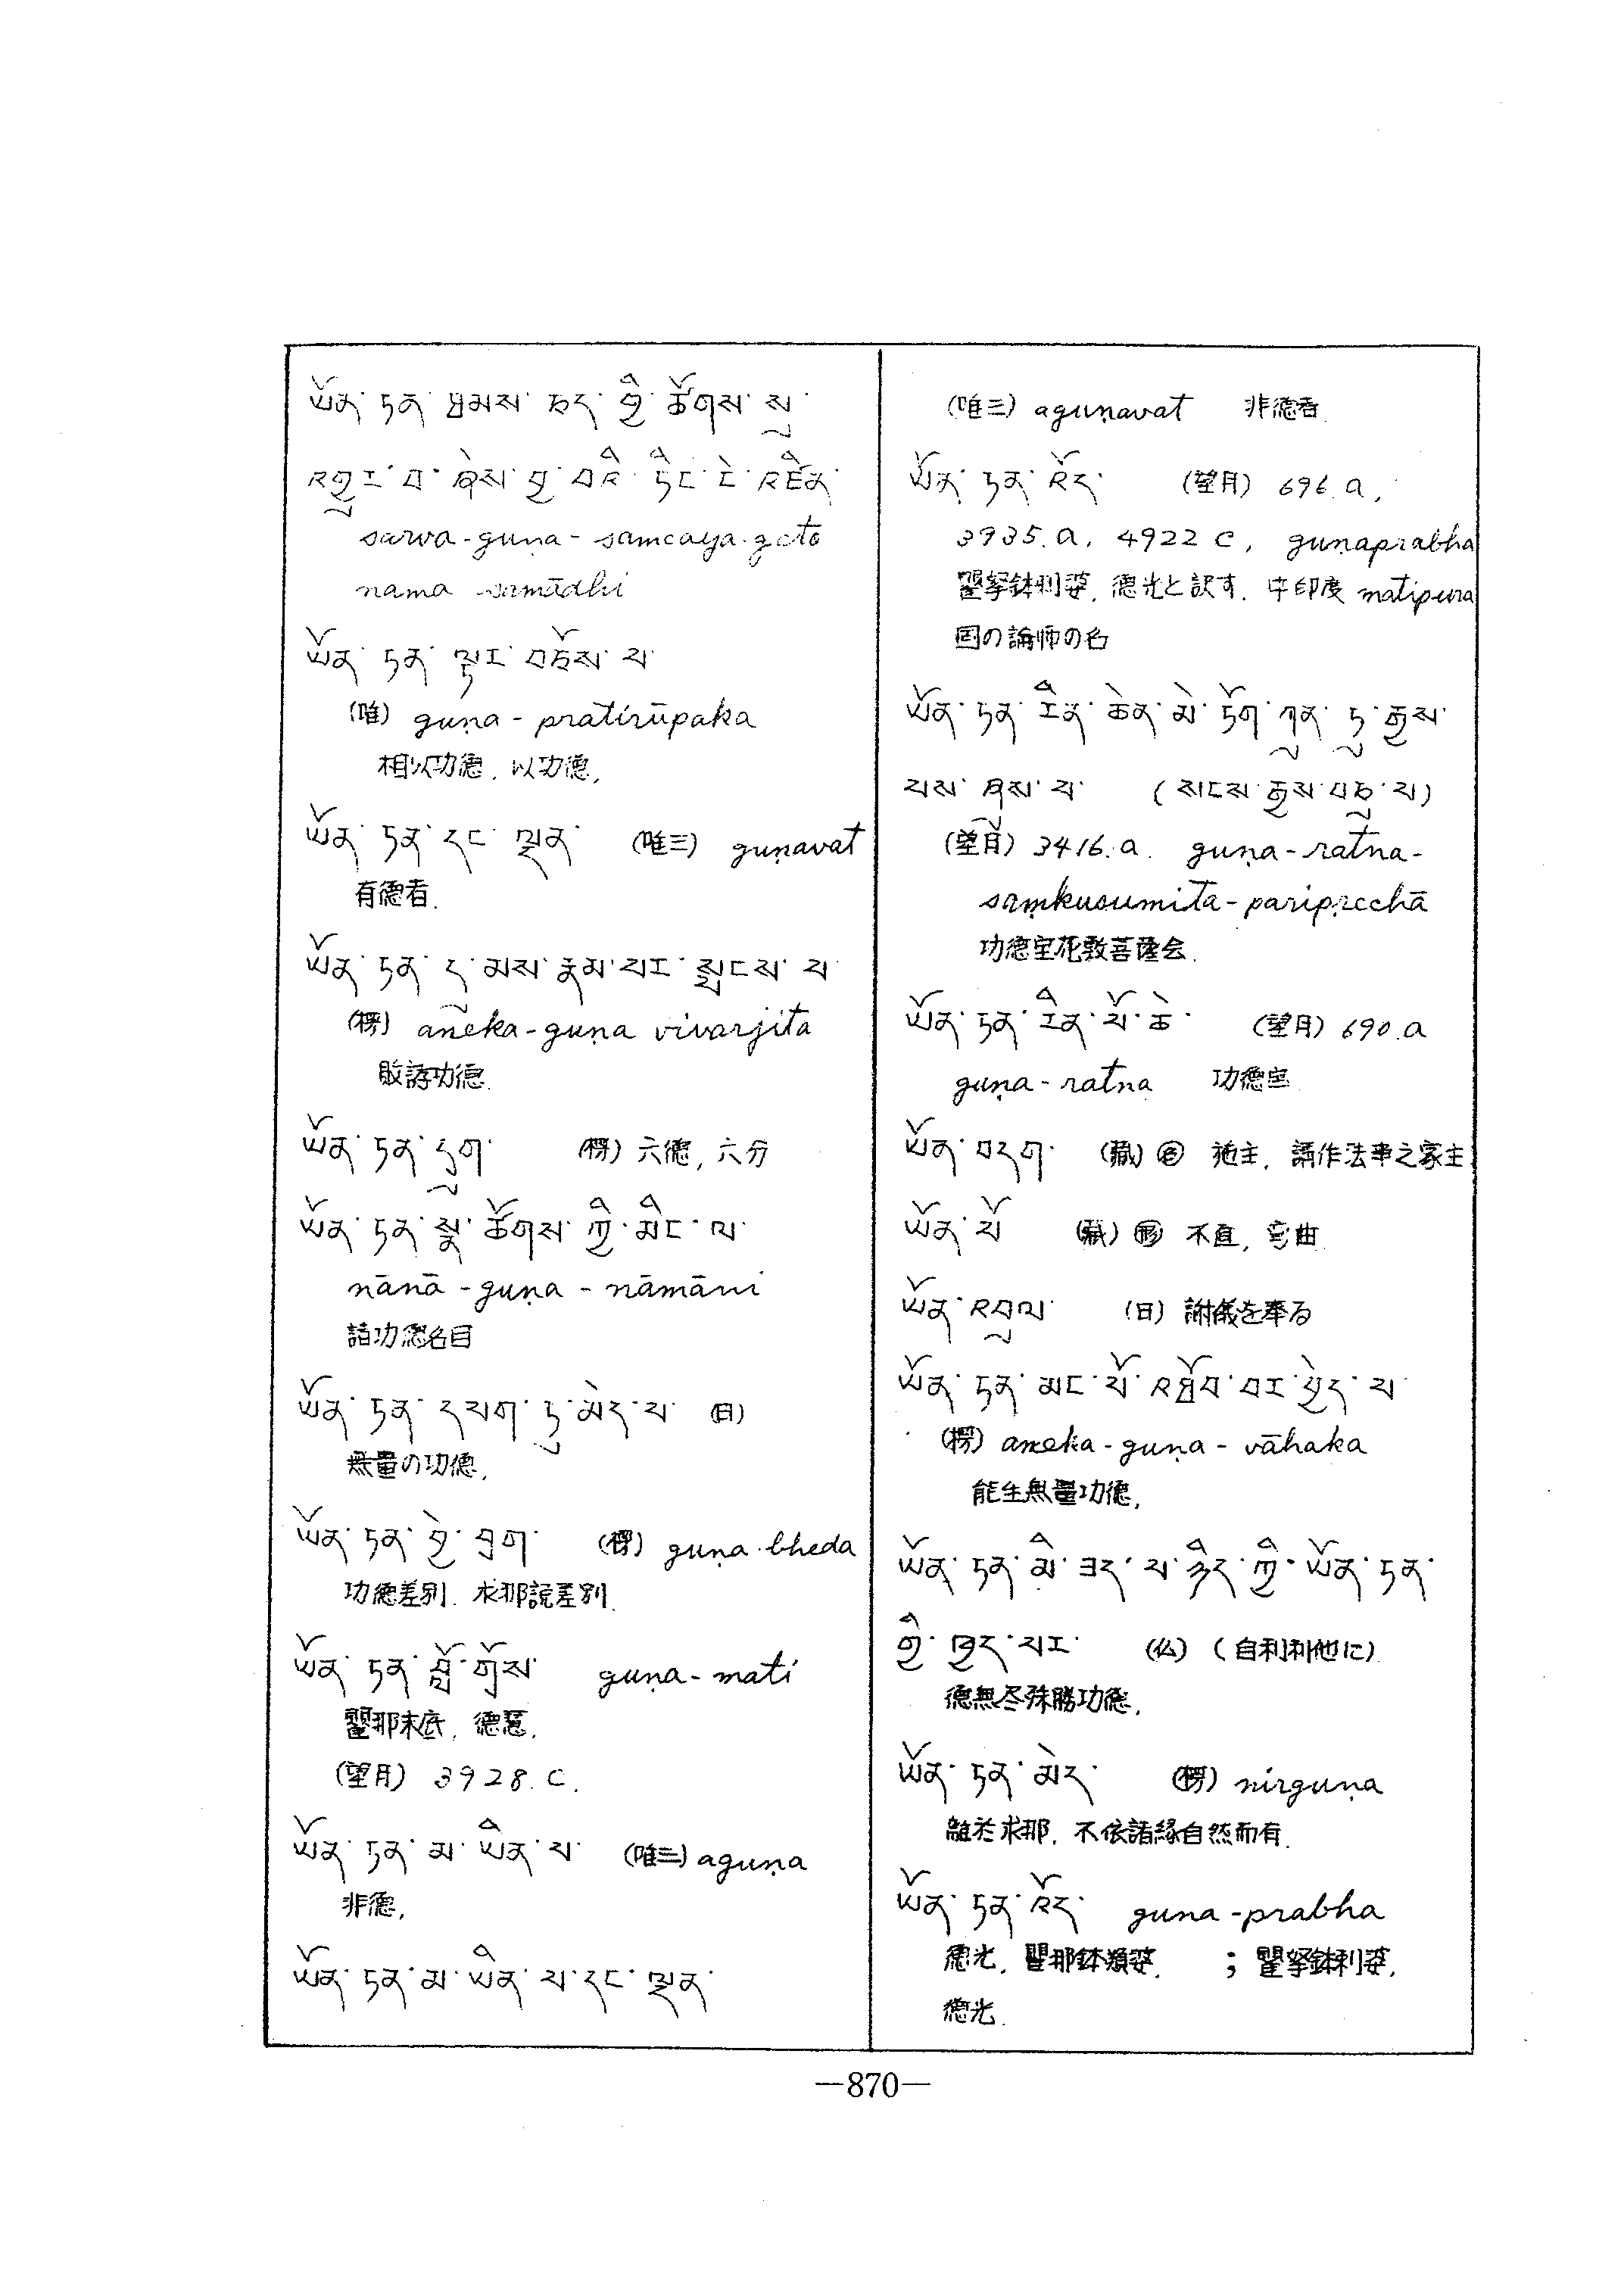 ཡོན་ཏན་ཐམས་ཅད་ཀྱི་ཚོགས་སུ་
འགྱུར་བ་ཞེས་བྱ་བའི་ཏིང་ངེ་འཛིན་
sarva-guṇa-samcaya-gato
nama samādhi
ཡོན་ཏན་ལྟར་བཅོས་པ་
(唯) guṇa-pratirūpaka
相似功德, 似功德,
ཡོན་ཏན་དང་ལྡན་ (唯三) guṇavat
有德者.
ཡོན་ཏན་དུ་མས་རྣམ་པར་སྤངས་པ་
(楞) aneka-guṇa vivarjita
毀謗功德.
ཡོན་ཏན་དྲུག་ (楞) 六德, 六分
ཡོན་ཏན་སྣ་ཚོགས་ཀྱི་མིང་ལ་
nānā-guṇa-nāmāni
諸功德名目
ཡོན་ཏན་དཔག་ཏུ་མེད་པ་ (日)
無量の功德,
ཡོན་ཏན་བྱེ་བྲག་ (楞) guṇa-bheda
功德差別. 求那説差別.
ཡོན་ཏན་བློ་གྲོས་ guṇa-mati
瞿那末底, 德慧,
(望月) 3928.c.
ཡོན་ཏན་མ་ཡིན་པ་ (唯三) aguṇa
非德,
ཡོན་ཏན་མ་ཡིན་པ་དང་ལྡན་
(唯三) aguṇavat 非德者.
ཡོན་ཏན་འོད་ (望月) 696.a,
3935.a, 4922 c, guṇaprabha
瞿拏鉢利婆, 德光と訳す. 中印度 matipura
国の論师の名
ཡོན་ཏན་རིན་ཆེན་མེ་ཏོག་ཀུན་ཏུ་རྒྱས་
པས་ཞུས་པ་ (སངས་རྒྱས་བཅུ་པ)
(望月) 3416.a. guṇa-ratna-
saṃkusumita-paripṛcchā
功德宝花敷菩薩会.
ཡོན་ཏན་རིན་པོ་ཆེ་ (望月) 690.a
guṇa-ratna 功德宝
ཡོན་བདག་ (藏) 名 施主, 請作法事之家主.
ཡོན་པོ (藏) 形 不直, 弯曲.
ཡོན་འབུལ་ (日) 謝儀を奉る
ཡོན་ཏན་མང་པོ་འཐོབ་པར་བྱེད་པ་
(楞) aneka-guṇa-vāhaka
能生無量功德,
ཡོན་ཏན་མི་ཟད་པ་ཉིད་ཀྱི་ཡོན་ཏན་
གྱི་ཁྱད་པར་ (仏) (自利利他に)
德無尽殊勝功德.
ཡོན་ཏན་མེད་ (楞) nirguṇa
離於求那, 不依諸緣自然而有.
ཡོན་ཏན་འོད་ guna-prabha
德光, 瞿那鉢頼婆, ; 瞿拏鉢利婆,
德光.
—870—